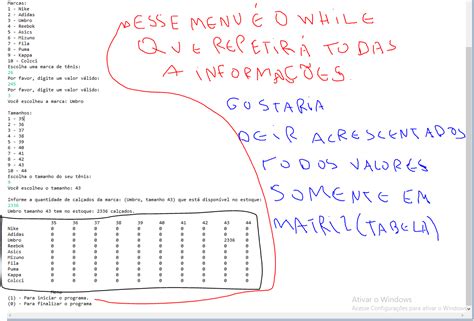 Marcas:
1 - Nike
2 - Adidas
3 - Umbro
4 - Reebok
5 - Asics
6 - Mizuno
7 - Fila
8 - Puma
9 - Kappa
10 - Colcci
Escolha uma marca de tênis:
Por favor, digite um valor válido:
Por favor, digite um valor válido:
3
Você escolheu a marca: Umbro
Tamanhos:
1 - 35
2 - 36
3 - 37
4 - 38
5 - 39
6 - 40
7 - 41
8 - 42
9 - 43
10 - 44
Escolha o tamanho do seu tênis:
Você escolheu o tamanho: 43
Informe a quantidade de calçados da marca: (Umbro, Tamanho 43) que está disponível no estoque:
2336
Umbro tamanho 43 tem no estoque: 2336 calçados.
35 36 37 38 39 40 41 42 43 44
Nike 0 0 0 0 0 0 0 0 0 0
Adidas 0 0 0 0 0 0 0 0 0 0
Umbro 0 0 0 0 0 0 0 0 2336 0
Reebok 0 0 0 0 0 0 0 0 0 0
Asics 0 0 0 0 0 0 0 0 0 0
Mizuno 0 0 0 0 0 0 0 0 0 0
Fila 0 0 0 0 0 0 0 0 0 0
Puma 0 0 0 0 0 0 0 0 0 0
Kappa 0 0 0 0 0 0 0 0 0 0
Colcci 0 0 0 0 0 0 0 0 0 0
Menu
(1) - Para iniciar o programa.
(0) - Para finalizar o programa
ESSE MENU É O WHILE
QUE REPETIRÁ TODAS
A INFORMAÇÕES.
GOSTARIA
DE IR ACRESCENTADOS
TODOS VALORES
SOMENTE EM
MATRIZ (TABELA)
Ativar o Windows
Acesse Configurações para ativar o Windows